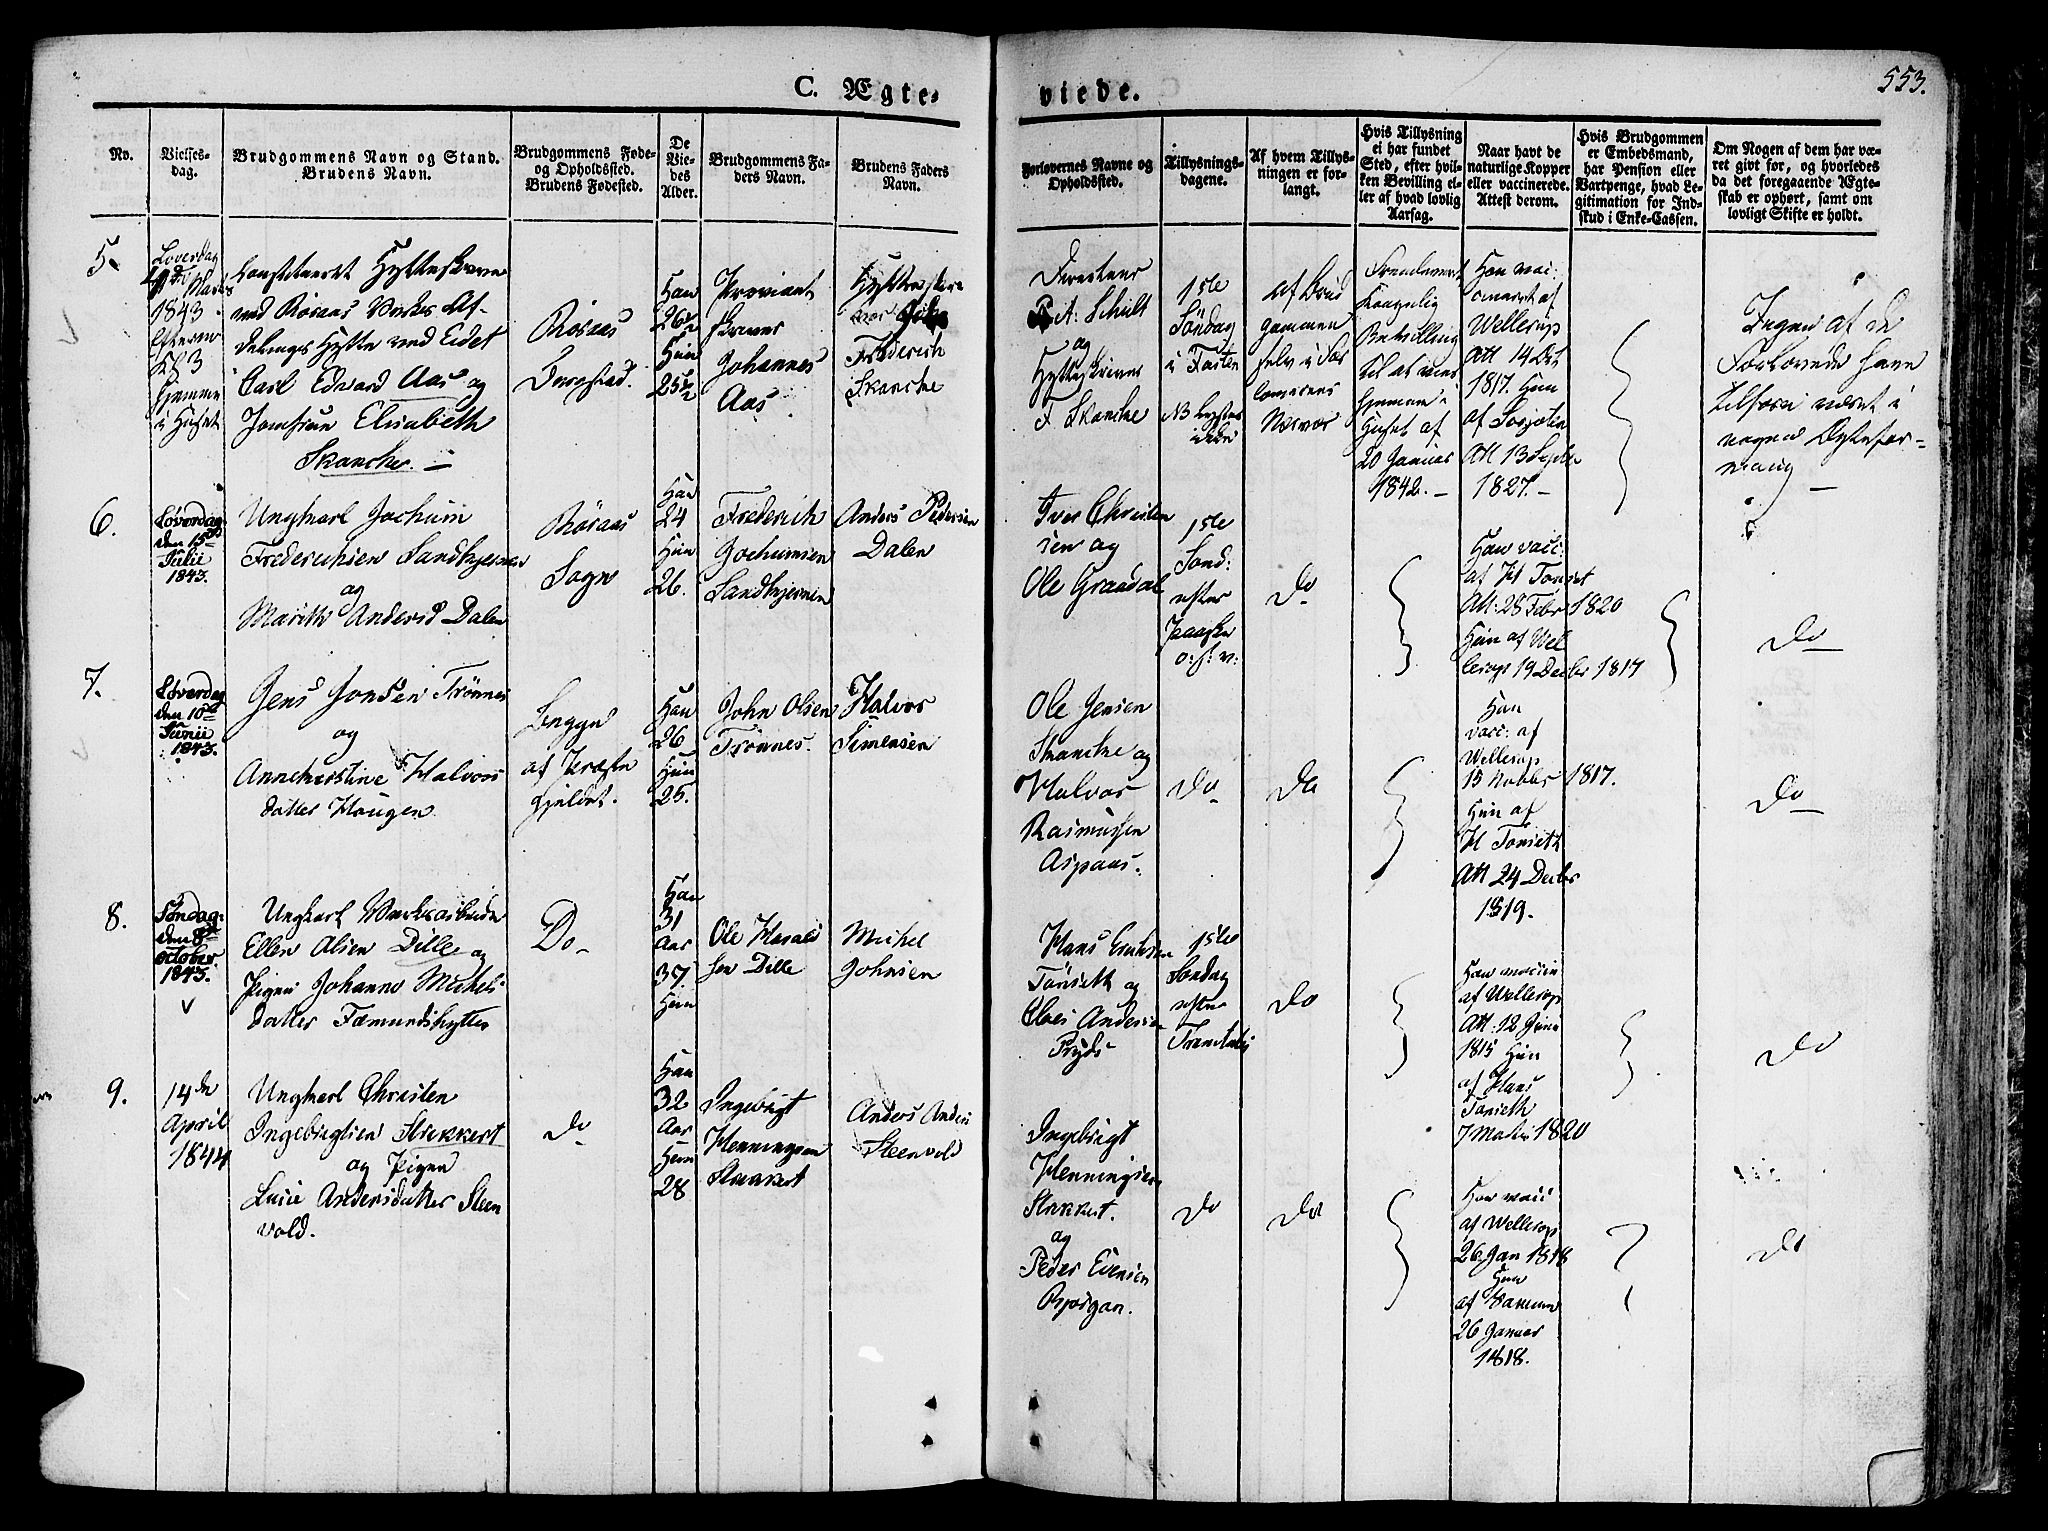 C. Ægte-
viede.
553.
No.
Vielses-
dag.
Brudgommens Navn og Stand.
Brudens Navn.
Brudgommens Føde-
og Opholdssted.
Brudens Fødested.
De
Vie-
des
Alder.
Brudgommens Fa-
ders Navn.
Brudens Faders
Navn.
Forlovernes Navne og
Opholdssted.
Tillysnings-
dagene.
Af hvem Tillys-
ningen er for-
langt.
Hvis Tillysning
ei har fundet
Sted, efter hvil-
ken Bevilling el-
ler af hvad lovlig
Aarsag.
Naar havt de
naturlige Kopper
eller vaccinerede.
Attest derom.
Hvis Brudgommen
er Embedsmand,
har Pension eller
Vartpenge, hvad Le-
gitimation for Ind-
skud i Enke-Cassen.
Om Nogen af dem har væ-
ret givt før, og hvorledes
da det foregaaende Ægte-
skab er ophørt, samt om
lovligt Skifte er holdt.
5.
Løverdag
1843
Hjemme
i Huset
Constitueret Hytteskriver
ved Røraas Verks Af-
delings Hytte ved Eidet
Carl Edvard Aas og
Jomfrue Elisabeth
Skancke. –
Røraas
Bergstad.
Han
26½
Hun
25½
Proviant
skriver
Johannes
Aas
Frederich
Skancke
Directeur
Schult
og
Hytteskriver
F Skancke
1ste
Søndag
i Fasten
af Brud
gommen
selv
Kongelig
Bevilling
til at vies
hjemme i
Huset af
20 Januar
1842. –
Han vac:
cineret af
Wellerop
Att 14 Dec
1817. Hun
Att 13 Septbr
1827. –
Ingen af de
Forlovede have
tilforn været i
nogen Ægtefor-
ening –
6.
Løverdag
den 15de
Julii
1843.
Ungkarl Jochum
Frederichsen Sandkjernen
og
Marith Andersd Dalen
Røraas
Sogn
Han
24
Hun
26.
Frederich
Jochumsen
Sandkjernen
Anders Pedersen
Dalen
Iver Christen
sen og
Ole Graadal
1ste
Sond:
efter
Paaske
o: s: v:
Do
Han vacc:
af H Tønset
Att: 28 Febr 1820
Hun af Wel
lerop 19 Decbr 1817
Do
7.
Løverdag
den 10de
Junii
1843.
Jens Jonsen Trønnes
og
Annechristine Halvors
datter Haugen.
af Præste
gjeldet.
Han
26
Hun
25.
John Olsen
Trønnes.
Halvor
Simensen
Ole Jensen
Skancke og
Halvor
Rasmussen
Aspaas.
Do
Do
Han
vacc: af
Wellerop
15 Novbr 1817.
Hun af
H Tønseth
Att 24 Decbr
1819.
Do
8.
Søndag
den 8de
october
1843.
Ungkarl Verksarbeider
Ellen Olsen Dille og
Pigen Johanne Michels
datter Fæmundshytten
Do
Han
31
Aar
37
Hun
Ole Harald
sen Dille
Michel
Johnsen
Hans Erichsen
Tønseth og
Claes Andersen
Pryds
1ste
Søndag
efter
Trinitatis
Do
Han vaccin
af Wellerop
Att: 12 Juni
1815 Hun
af Hans
Tønseth
1820
Do
9.
14de
April
1844
Ungkarl Christen
Ingebrigtsen Stikkert
og Pigen
Lucie Andersdatter Steen
vold.
Do
Han
32
Aar
Hun
28
Ingebrigt
Henningsen
Anders Anders
Steenvold
Ingebrigt
Henningsen
og
Peder Evensen
Bjørgan.
Do
Do
Han vacc
af Wellerop
26 Jan 1818
Hun
26 Januar
1818.
Do